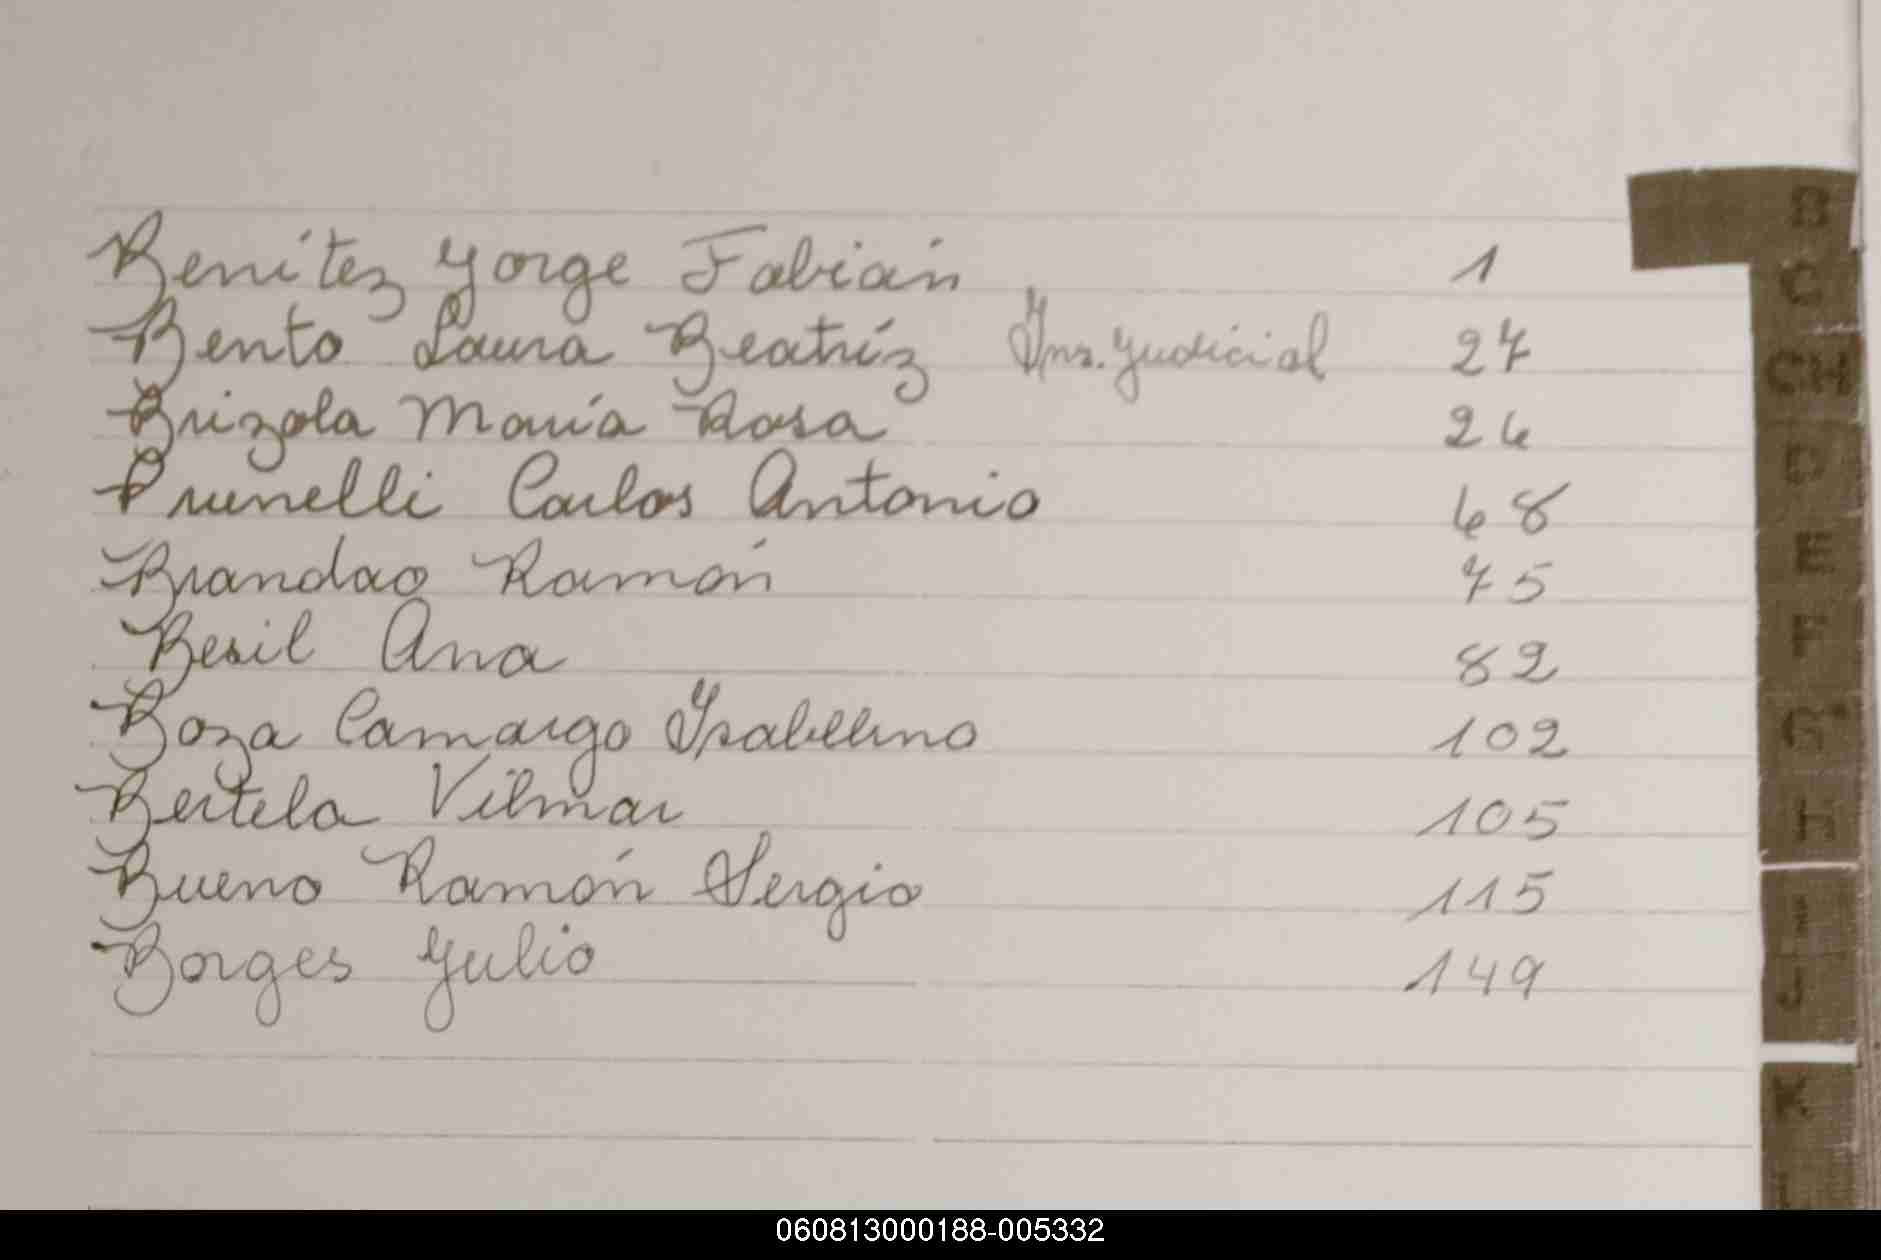 Benítez Jorge Fabián 1
Bento Laura Beatríz Ins. Judicial 27
Brizola María Rosa 26
Prunelli Carlos Antonio 68
Brandao Ramón 75
Besil Ana 82
Boza Camargo Isabelino 102
Bertela Vilmar 105
Bueno Ramón Sergio 115
Borges Julio 149
B
C
CH
D
E
F
G
H
I
J
K
L
060813000188-005332